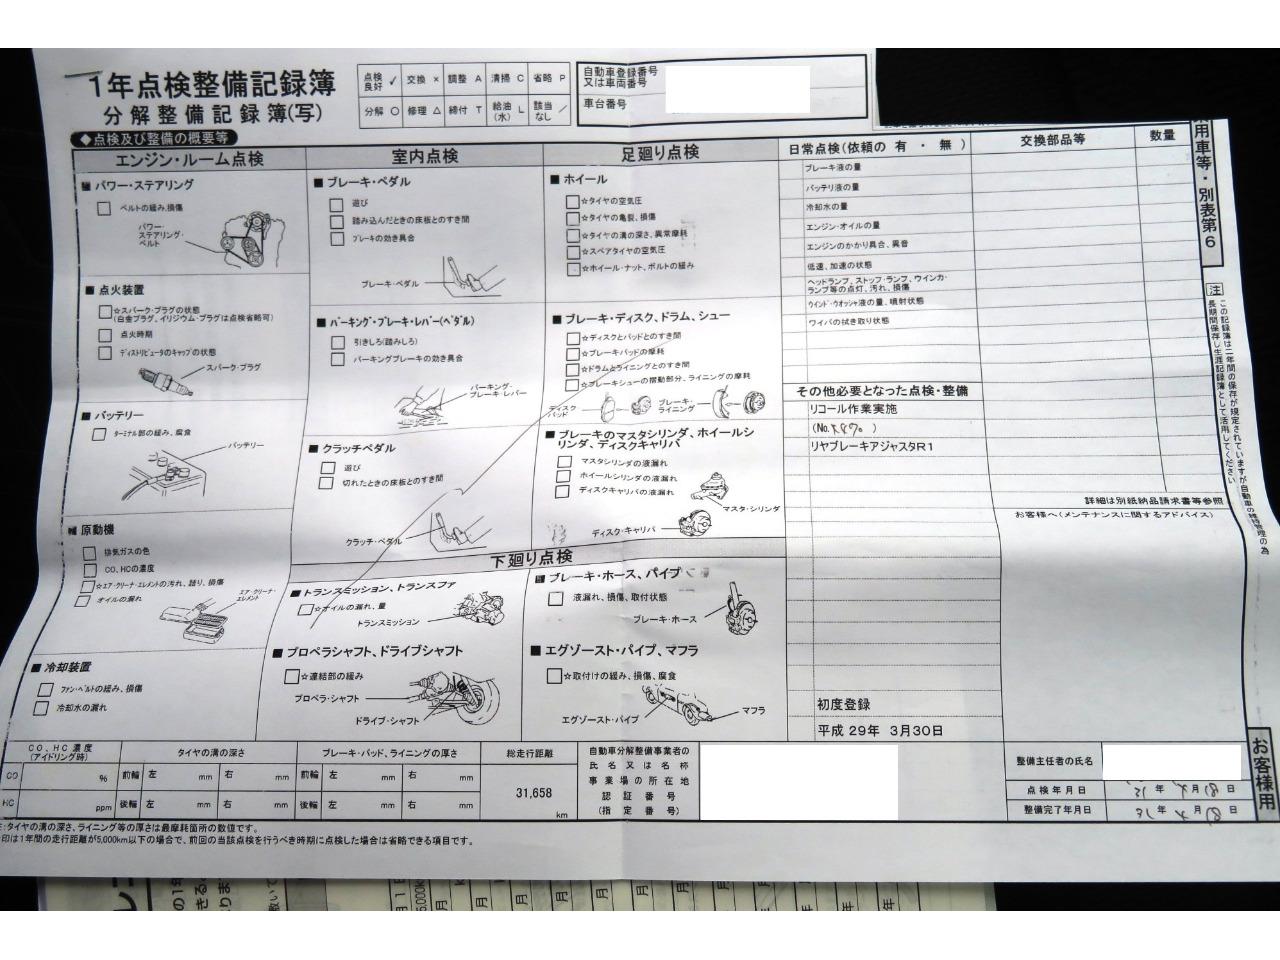 1年点検整備記録簿
分解整備記録簿(写)
点検良好 ✓ 交換 × 調整 A 清掃 C 省略 P
分解 ○ 修理 △ 締付 T 給油(水) L 該当なし ／
自動車登録番号
又は車両番号
車台番号
◆点検及び整備の概要等
エンジン・ルーム点検
■ パワー・ステアリング
ベルトの緩み、損傷
パワー・
ステアリング・
ベルト
■ 点火装置
☆スパーク・プラグの状態
(白金プラグ、イリジウム・プラグは点検省略可)
点火時期
ディストリビュータのキャップの状態
スパーク・プラグ
■ バッテリー
ターミナル部の緩み、腐食
バッテリー
■ 原動機
排気ガスの色
CO、HCの濃度
☆エア・クリーナ・エレメントの汚れ、詰り、損傷
オイルの漏れ
エア・クリーナ・
エレメント
■ 冷却装置
ファン・ベルトの緩み、損傷
冷却水の漏れ
室内点検
■ ブレーキ・ペダル
遊び
踏み込んだときの床板とのすき間
ブレーキの効き具合
ブレーキ・ペダル
■ パーキング・ブレーキ・レバー(ペダル)
引きしろ(踏みしろ)
パーキングブレーキの効き具合
パーキング・
ブレーキ・レバー
■ クラッチペダル
遊び
切れたときの床板とのすき間
クラッチ・ペダル
足廻り点検
■ ホイール
☆タイヤの空気圧
☆タイヤの亀裂、損傷
☆タイヤの溝の深さ、異常摩耗
☆スペアタイヤの空気圧
☆ホイール・ナット、ボルトの緩み
■ ブレーキ・ディスク、ドラム、シュー
☆ディスクとパッドとのすき間
☆ブレーキパッドの摩耗
☆ドラムとライニングとのすき間
☆ブレーキシューの摺動部分、ライニングの摩耗
ディスク
パッド
ブレーキ・
ライニング
■ ブレーキのマスタシリンダ、ホイールシ
リンダ、ディスクキャリパ
マスタシリンダの液漏れ
ホイールシリンダの液漏れ
ディスクキャリパの液漏れ
マスタ・シリンダ
ディスク・キャリパ
下廻り点検
■ トランスミッション、トランスファ
☆オイルの漏れ、量
トランスミッション
■ プロペラシャフト、ドライブシャフト
☆連結部の緩み
プロペラ・シャフト
ドライブ・シャフト
■ ブレーキ・ホース、パイプ
液漏れ、損傷、取付状態
ブレーキ・ホース
■ エグゾースト・パイプ、マフラ
☆取付けの緩み、損傷、腐食
エグゾースト・パイプ
マフラ
日常点検(依頼の 有 ・ 無 )
ブレーキ液の量
バッテリ液の量
冷却水の量
エンジン・オイルの量
エンジンのかかり具合、異音
低速、加速の状態
ヘッドランプ、ストップ・ランプ、ウインカ・
ランプ等の点灯、汚れ、損傷
ウインド・ウオッシャ液の量、噴射状態
ワイパの拭き取り状態
その他必要となった点検・整備
リコール作業実施
(No. )
リヤブレーキアジャスタR1
初度登録
平成 29年 3月30日
交換部品等 数量
詳細は別紙納品請求書等参照
お客様へ(メンテナンスに関するアドバイス)
用車等・別表第6
注
この記録簿は二年間の保存が規定されていますが自動車の維持管理の為
長期間保存し生涯記録簿として活用してください
お客様用
CO、HC 濃度
(アイドリング時)
タイヤの溝の深さ
ブレーキ・パッド、ライニングの厚さ
総走行距離
CO % 前輪 左 mm 右 mm 前輪 左 mm 右 mm
HC ppm 後輪 左 mm 右 mm 後輪 左 mm 右 mm
31,658
km
自動車分解整備事業者の
氏名又は名称
事業場の所在地
認証番号
(指定番号)
整備主任者の氏名
点検年月日 31 年 4 月 18 日
整備完了年月日 31 年 4 月 18 日
:タイヤの溝の深さ、ライニング等の厚さは最摩耗箇所の数値です。
印は1年間の走行距離が5,000km以下の場合で、前回の当該点検を行うべき時期に点検した場合は省略できる項目です。